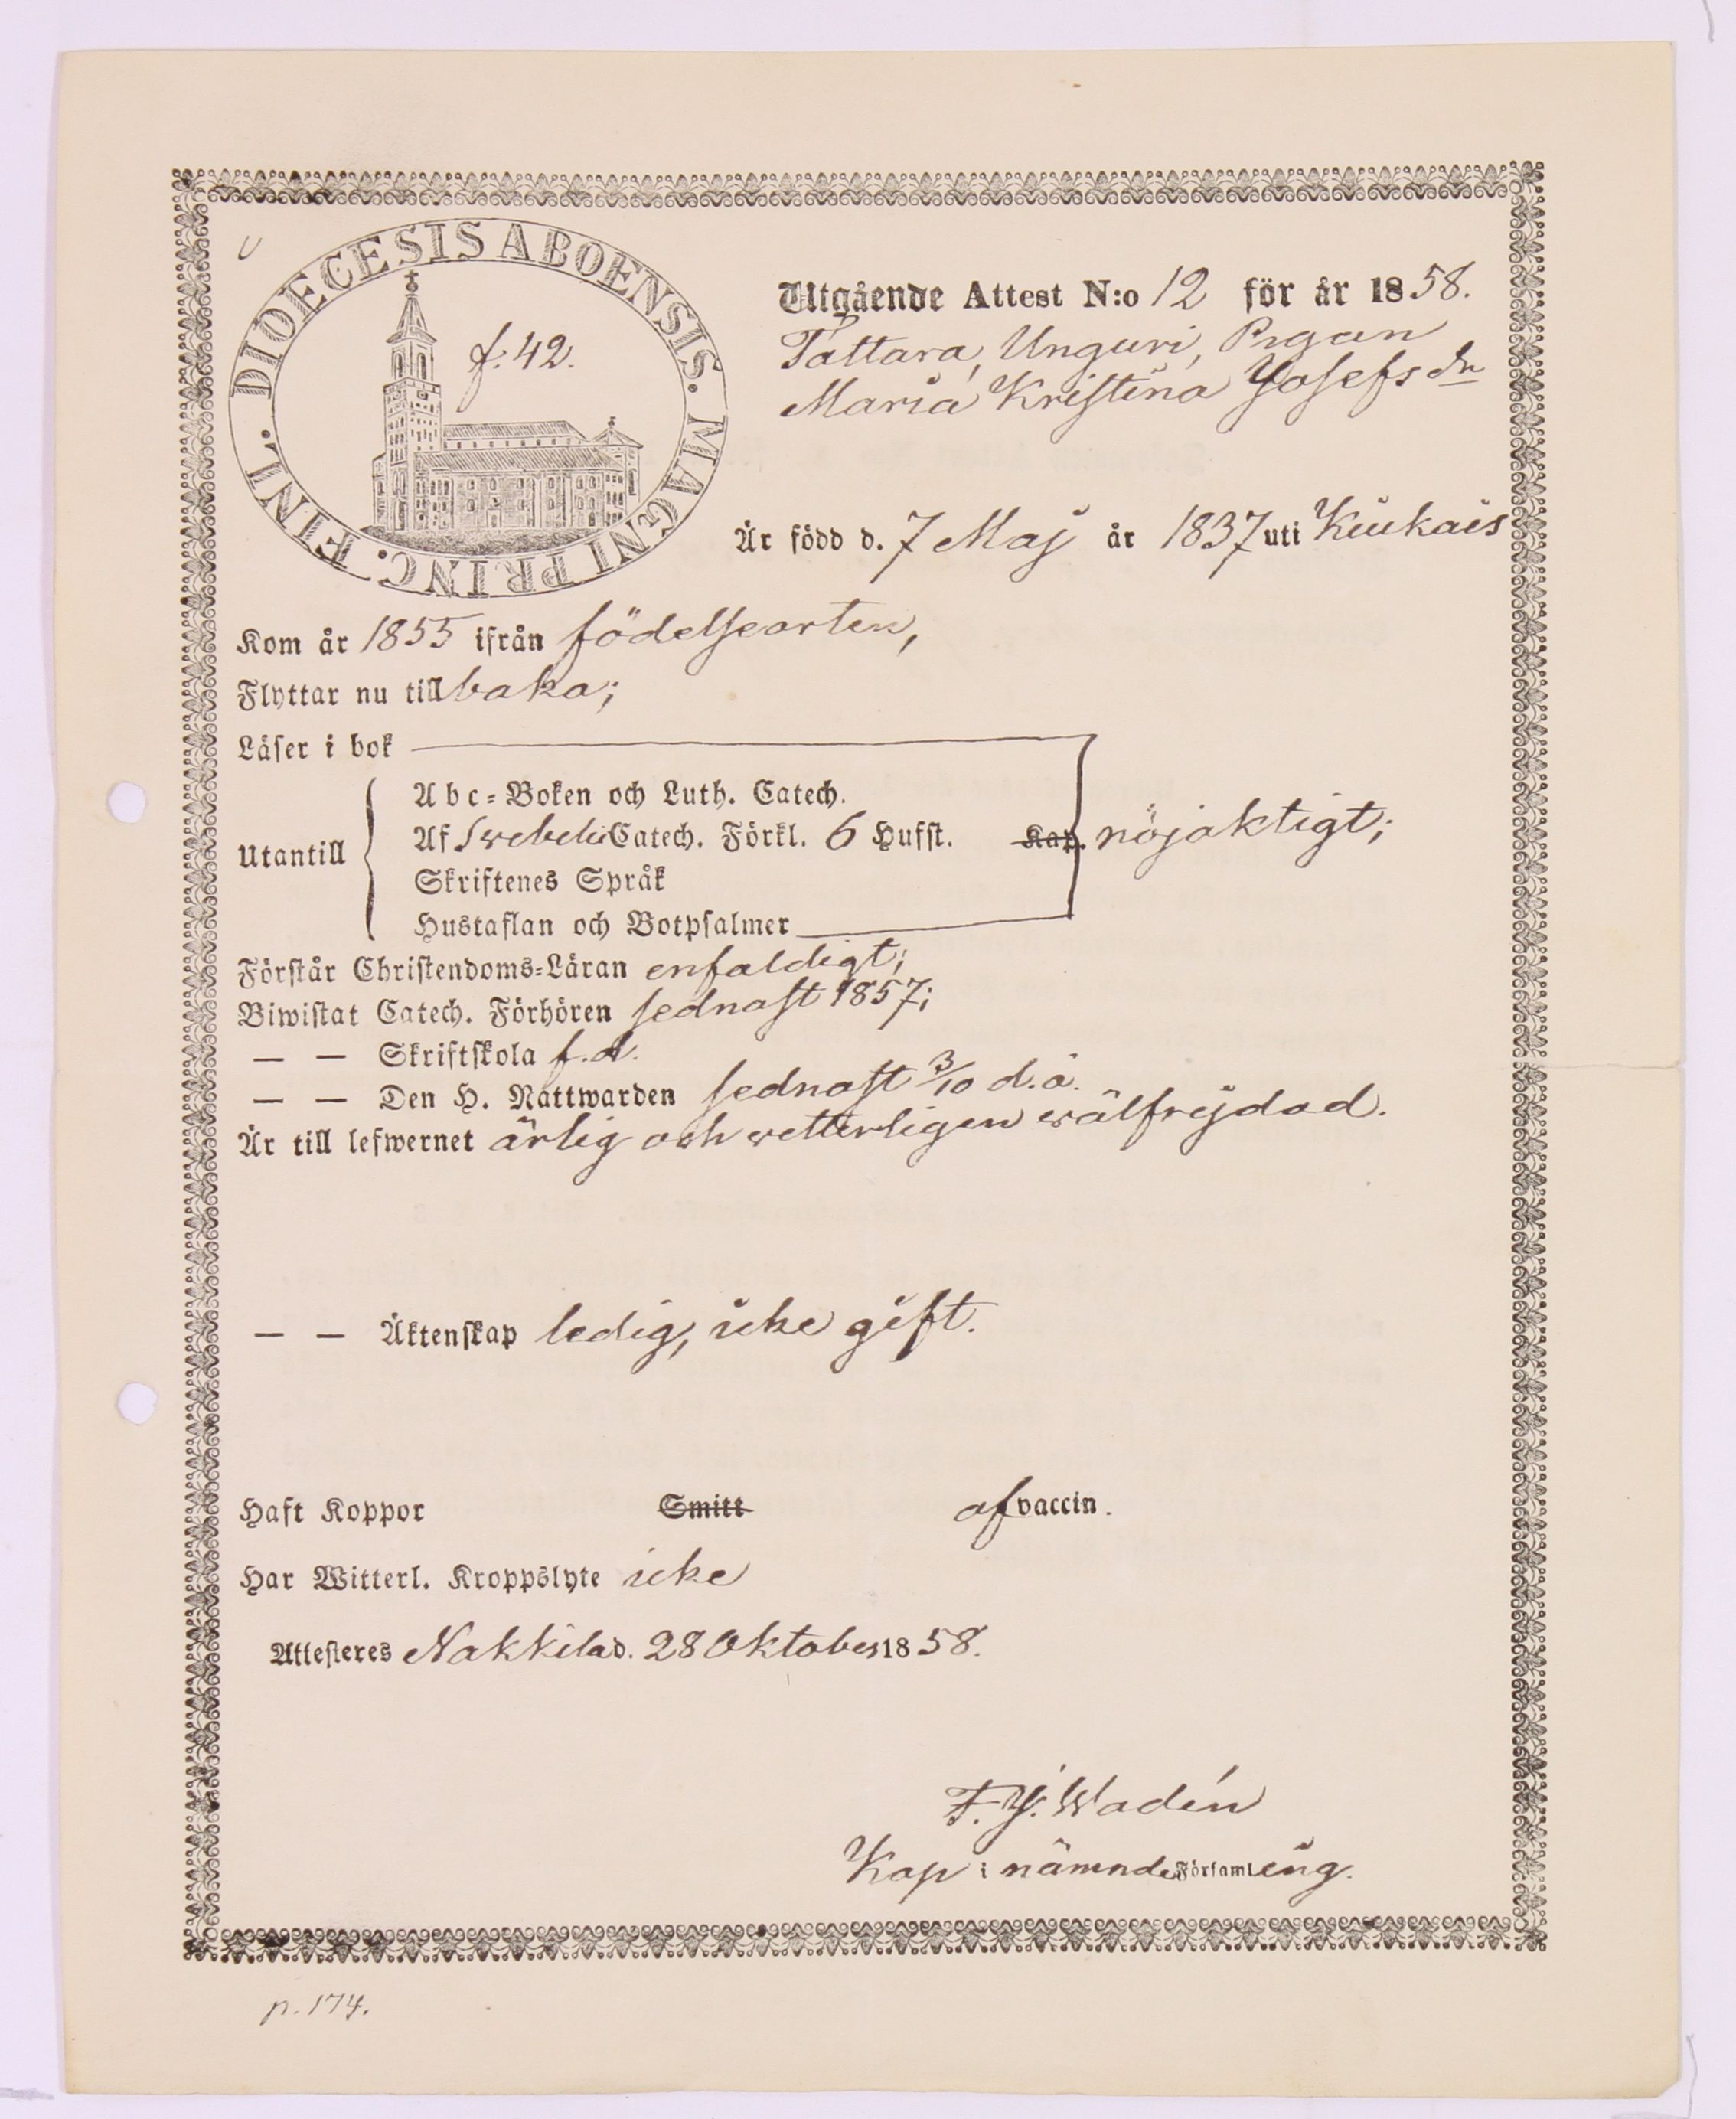 DIOECESIS ABOENSIS. MAGNI PRINC. FINL.
f. 42.
Utgående Attest N:o 12 för år 1858.
Tattara, Unguri, Pigan
Maria Kristina Josefsdr
Är född d. 7 Maj år 1837 uti Kiukais
Kom år 1855 ifrån födelseorten,
Flyttar nu tillbaka;
Läser i bok
Utantill
Abc-Boken och Luth. Catech.
Af Svebelii Catech. Förkl. 6 Hufst. Kap. nöjaktigt;
Skriftenes Språk
Hustaflan och Botpsalmer
Förstår Christendoms-Läran enfaldigt;
Biwistat Catech. Förhören sednast 1857;
— — Skriftskola f.d.
— — Den H. Nattwarden sednast 3/10 d.å.
Är till lefwernet ärlig och wetterligen wälfrejdad.
— — Äktenskap ledig, icke gift.
Haft Koppor Smitt af vaccin.
Har Witterl. Kroppslyte icke
Attesteres Nakkila d. 28 Oktober 1858.
F. J. Wadén
Kap i nämnde Församling.
p. 174.